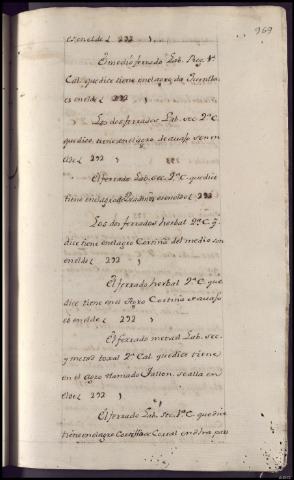 969
es en el de ( 292 )
El medio ferrado Lab. Reg. 1ª
Cal. que dice tiene en el agro da
es en el de ( 292 )
Los dos ferrados Lab. sec. 2ª C.
que dice, tiene en el agro de son en
el de ( 292 )
El ferrado Lab. sec. 2ª C. que dice
tiene en el agro de es en el de ( 292
Los dos ferrados herbal 2ª C. q.
dice tiene en el agro Cortiña del medio son
en el de ( 292 )
El ferrado herbal 2ª C. que
dice tiene en el Agro Cortiña
es en el de ( 292 )
El ferrado Lab. sec.
y metad toxal 2ª Cal. que dice tiene
en el Agro llamado Fallon, se alla en
el de ( 292 )
El ferrado Lab. sec. 1ª C. que dice
tiene en el agro Cortiña de Corral en otra par